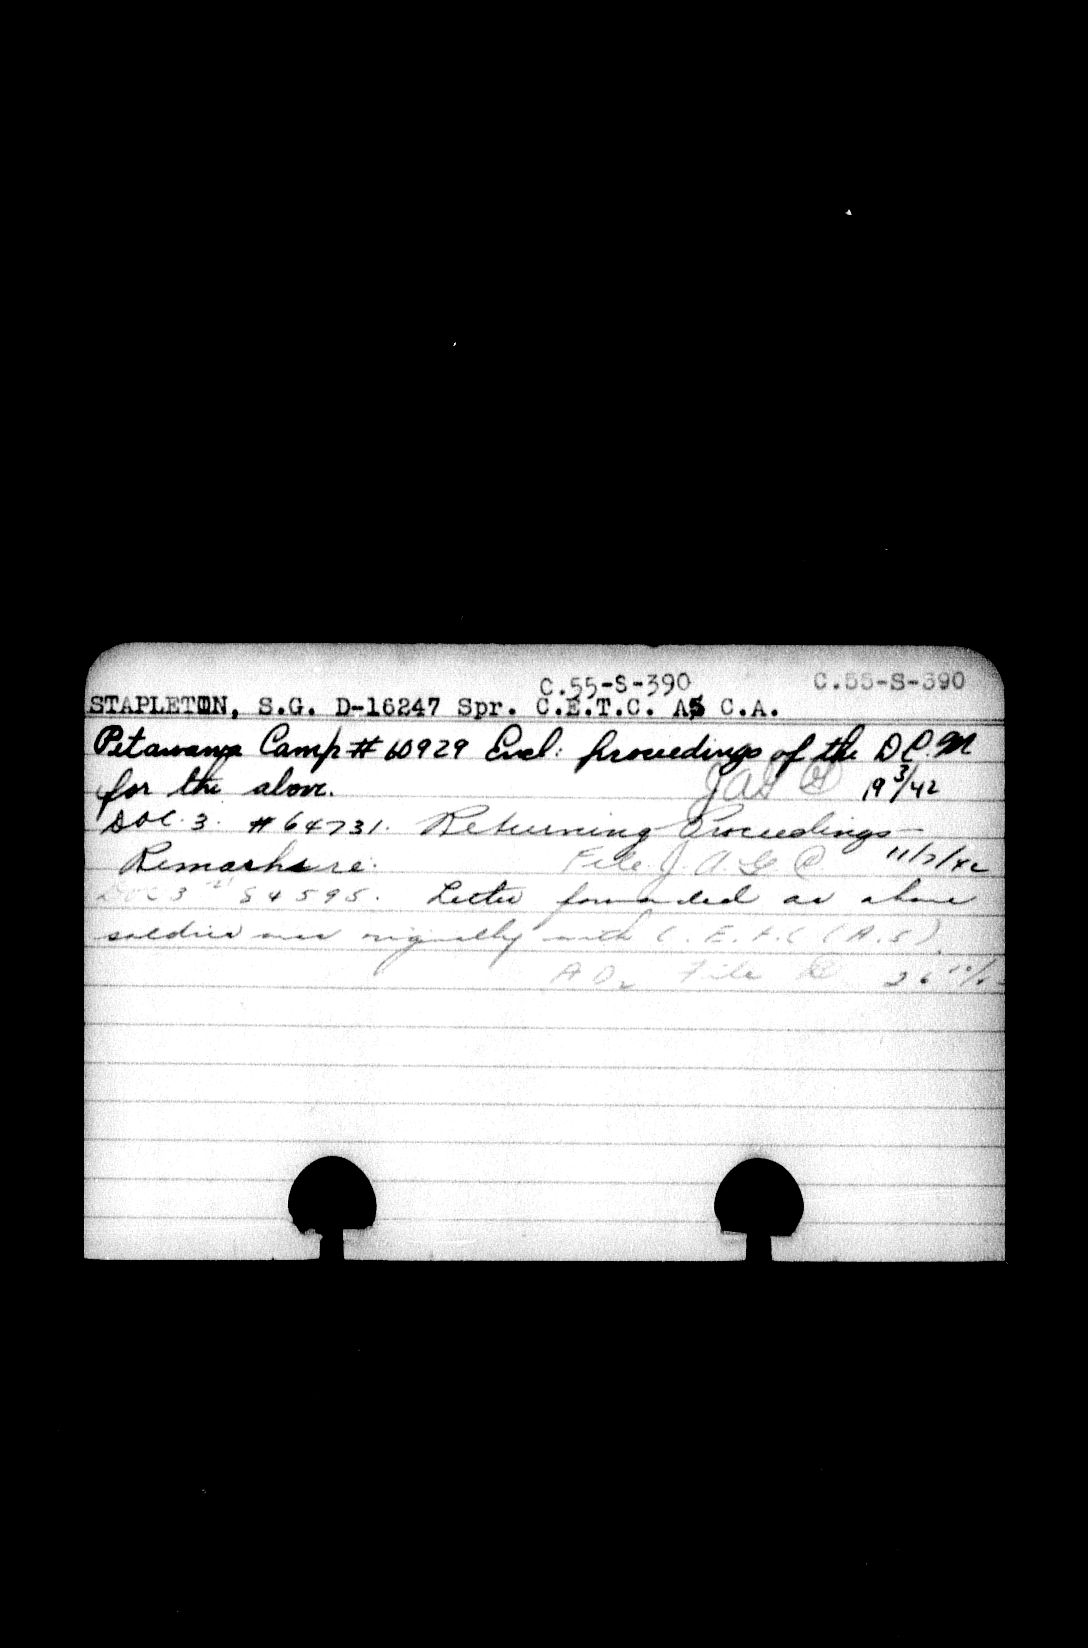 C.55-S-390 C.55-S-390
STAPLETON, S.G. D-16247 Spr. C.E.T.C. AS C.A.
Petawawa Camp # 60929 Encl: proceedings of the D.C.M
for the above. JAG 19 3/42
DOC. 3. # 64731. Returning Proceedings
Remarks re. File J.A.G. 11/7/42
DOC 3 54595. Letter forwarded as above
soldier was originally with C.E.T.C (A.S).
AD2 File 26